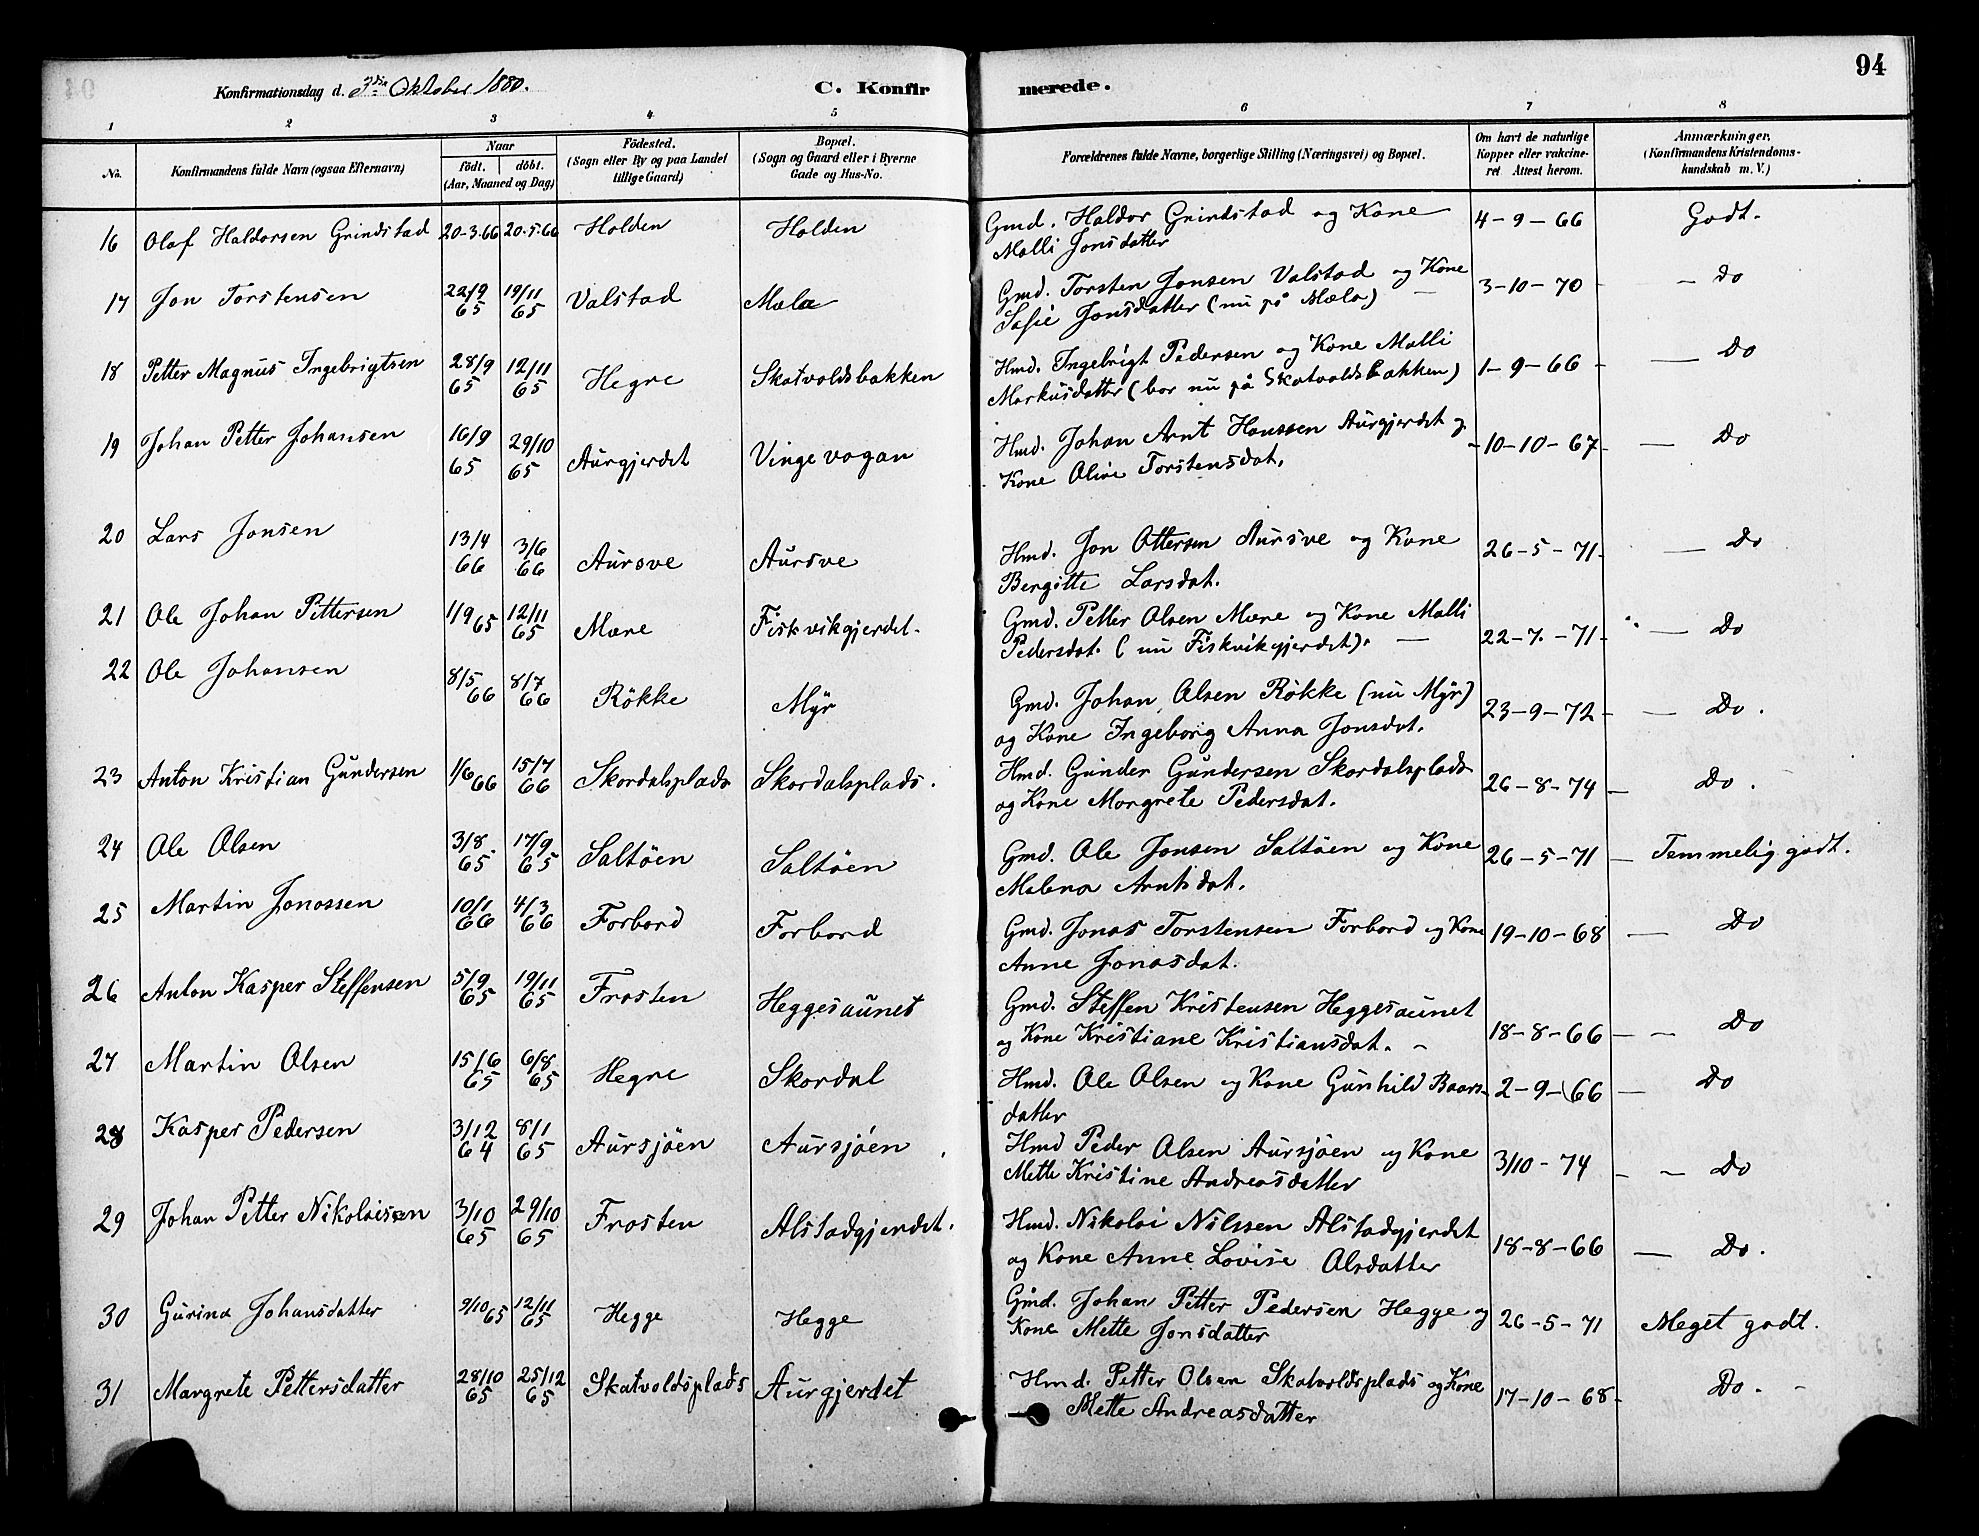 94
Konfirmationsdag d. 3die Oktober 1880. C. Konfirmerede.
1 2 3 4 5 6 7 8
No. Konfirmandens fulde Navn (ogsaa Efternavn) Naar födt. döbt. (Aar, Maaned og Dag) Födested. (Sogn eller By og paa Landet tillige Gaard) Bopæl. (Sogn og Gaard eller i Byerne Gade og Hus-No. Forældrenes fulde Navne, borgerlige Stilling (Næringsvei) og Bopæl. Om havt de naturlige Kopper eller vakcineret Attest herom. Anmærkninger. (Konfirmandens Kristendomskundskab m. V.)
16 Olaf Haldorsen Grindstad 20-3.66 20.5.66 Holden Holden Gmd. Haldor Grindstad og Kone Malli Jonsdatter 4-9-66 Godt.
17 Jon Torstensen 22/9 65 19/11 65 Valstad Mæla Gmd. Torsten Jonsen Valstad og Kone Sofie Jonsdatter (nu på Mæla) 3-10-70 - Do
18 Petter Magnus Ingebrigtsen 28/9 65 12/11 65 Hegre Skatvoldsbakken Hmd. Ingebrigt Pedersen og Kone Malli Markusdatter (bor nu på Skatvoldsbakken) 1-9-66 - Do
19 Johan Petter Johansen 16/9 65 29/10 65 Aurgjerdet Vingevagan Hmd. Johan Arnt Hanssen Aurgjerdet og Kone Oline Torstensdat. 10-10-67 - Do
20 Lars Jonsen 13/4 66 3/6 66 Aursve Aursve Hmd. Jon Ottersen Aursve og Kone Bergitte Larsdat. 26-5-71 - Do
21 Ole Johan Pettersen 1/9 65 12/11 65 Mære Fiskvikgjerdet. Gmd. Petter Olsen Mære og Kone Malli Pedersdat. (nu Fiskvikgjerdet). 22-7.-71 - Do
22 Ole Johansen 8/5 66 8/7 66 Rökke Myr Gmd. Johan Olsen Rökke (nu Myr) og Kone Ingeborg Anna Jonsdat. 23-9-72 - Do.
23 Anton Kristian Gundersen 1/6 66 15/7 66 Skordalsplads Skordalsplads. Hmd. Gunder Gundersen Skordalsplads og Kone Margrete Pedersdat. 26-8-74 - Do.
24 Ole Olsen 3/8 65 17/9 65 Saltöen Saltöen Gmd. Ole Jonsen Saltöen og Kone Malena Arntsdat. 26-5-71 - Temmelig godt.
25 Martin Jonassen 10/1 66 4/3 66 Forbord Forbord Gmd. Jonas Torstensen Forbord og Kone Anne Jonasdat. 19-10-68 - Do
26 Anton Kasper Steffensen 5/9 65 19/11 65 Frosten Heggesaunet Gmd. Steffen Kristensen Heggesaunet og Kone Kristiane Kristiansdat. 18-8-66 - Do
27 Martin Olsen 15/6 65 6/8 65 Hegre Skordal Hmd. Ole Olsen og Kone Gunhild Baarsdatter 2-9-66 - Do
28 Kasper Pedersen 3/12 64 8/1 65 Aursjöen Aursjöen Hmd Peder Olsen Aursjöen og Kone Mette Kristine Andreasdatter 3/10-74 - Do
29 Johan Petter Nikolaisen 3/10 65 29/10 65 Frosten Alstadgjerdet. Hmd. Nikolai Nilssen Alstadgjerdet og Kone Anne Lovise Olsdatter 18-8-66 - Do.
30 Gurina Johansdatter 9/10 65 12/11 65 Hegge Hegge Gmd. Johan Petter Pedersen Hegge og Kone Mette Jonsdatter 26-5-71 Meget godt.
31 Margrete Pettersdatter 28/10 65 25/12 65 Skatvoldsplads Aurgjerdet Hmd. Petter Olsen Skatvoldsplads og Kone Mette Andreasdatter 17-10-68 - Do.